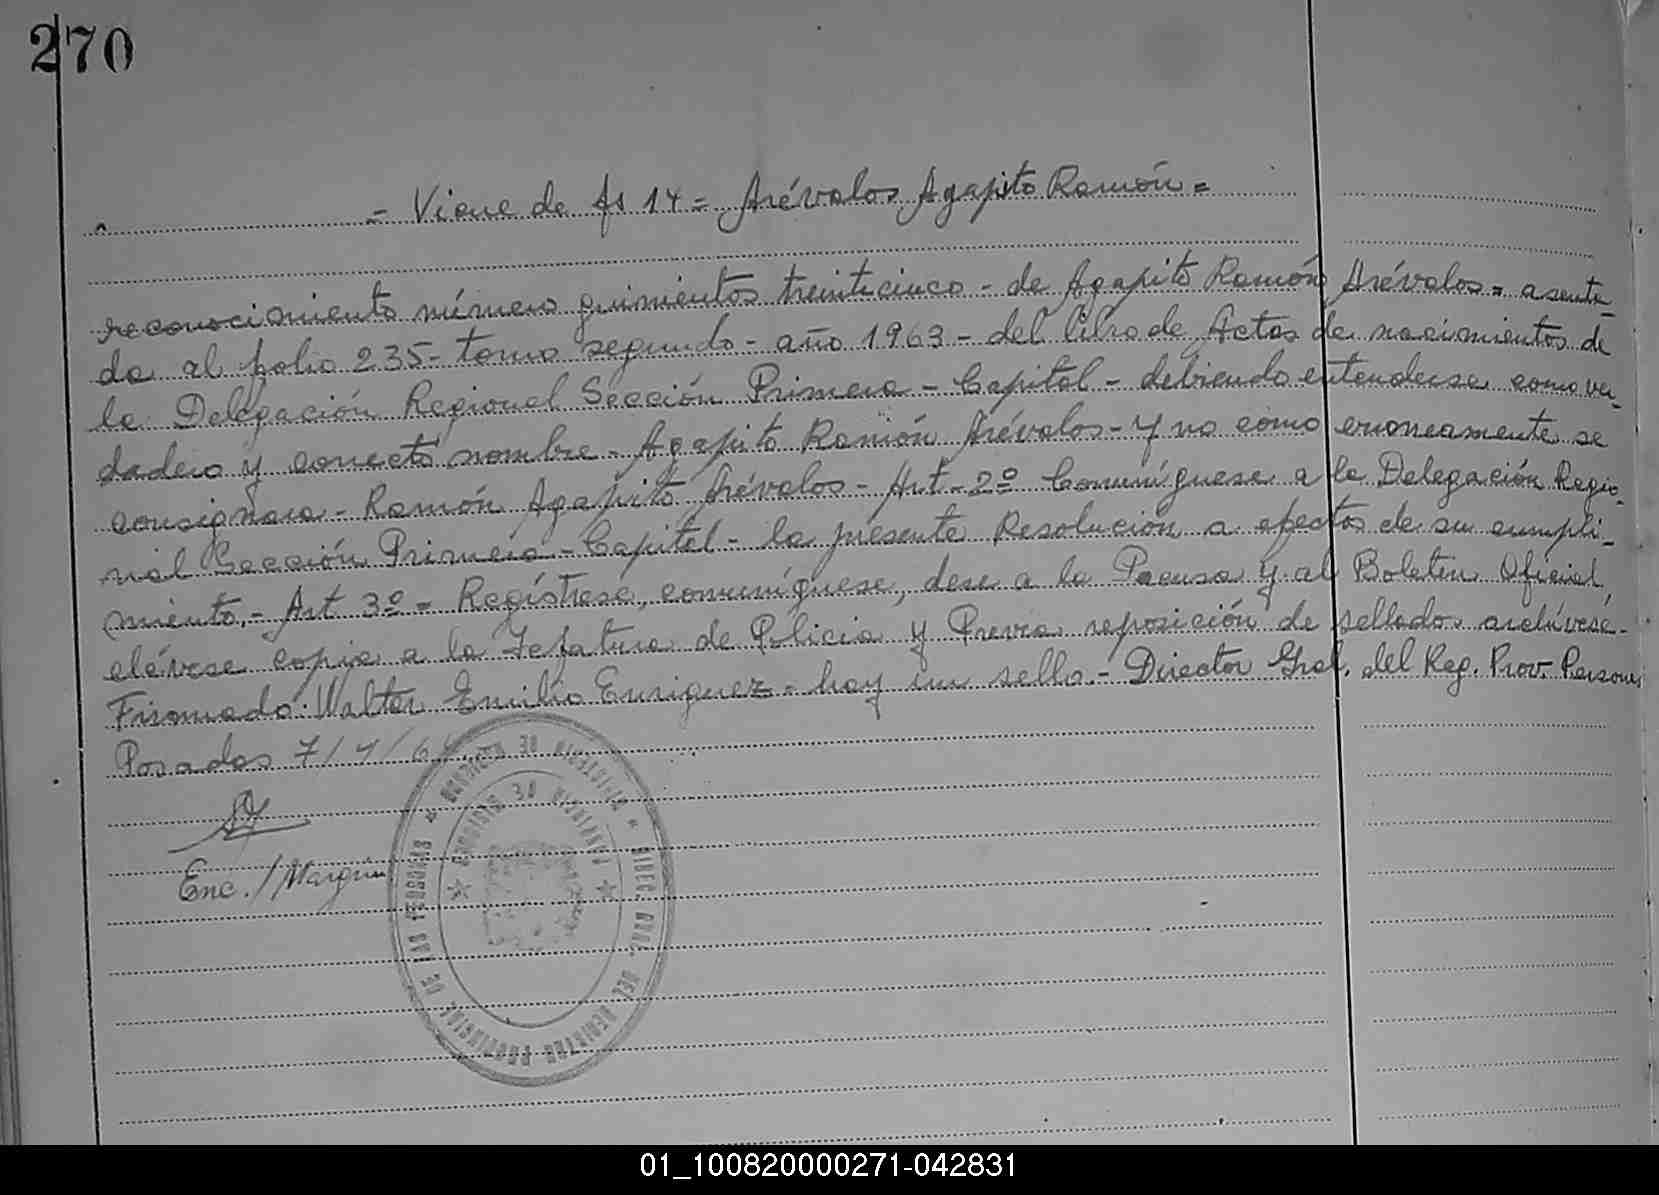 270
= Viene de fs 14 = Arévalos Agapito Ramón =
reconocimiento número quinientos treinticinco - de Agapito Ramón Arévalos = asenta_
da al folio 235 - tomo segundo - año 1963 - del libro de Actas de nacimientos de
la Delegación Regional Sección Primera - Capital - debiendo entenderse como ver_
dadero y correcto nombre - Agapito Ramón Arévalos - y no como erroneamente se
consignara - Ramón Agapito Arévalos - Art - 2º Comuníguese a la Delegación Regio_
nal Sección Primera - Capital - la presente Resolución a efectos de su cumpli_
miento. - Art 3º = Regístrese, comuníguese, dese a la Prensa y al Boletin Oficial,
elévese copia a la Jefatura de Policia y Previa reposición de sellado. archívese. -
Firmado: Walter Emilio Enriquez - hay un sello. - Director Gral. del Reg. Prov. Personas
Posadas 7/4/6
Enc. / Margin
DIREC. GRAL. DEL REGISTRO PROVINCIAL DE LAS PERSONAS
PROVINCIA DE MISIONES
01_100820000271-042831